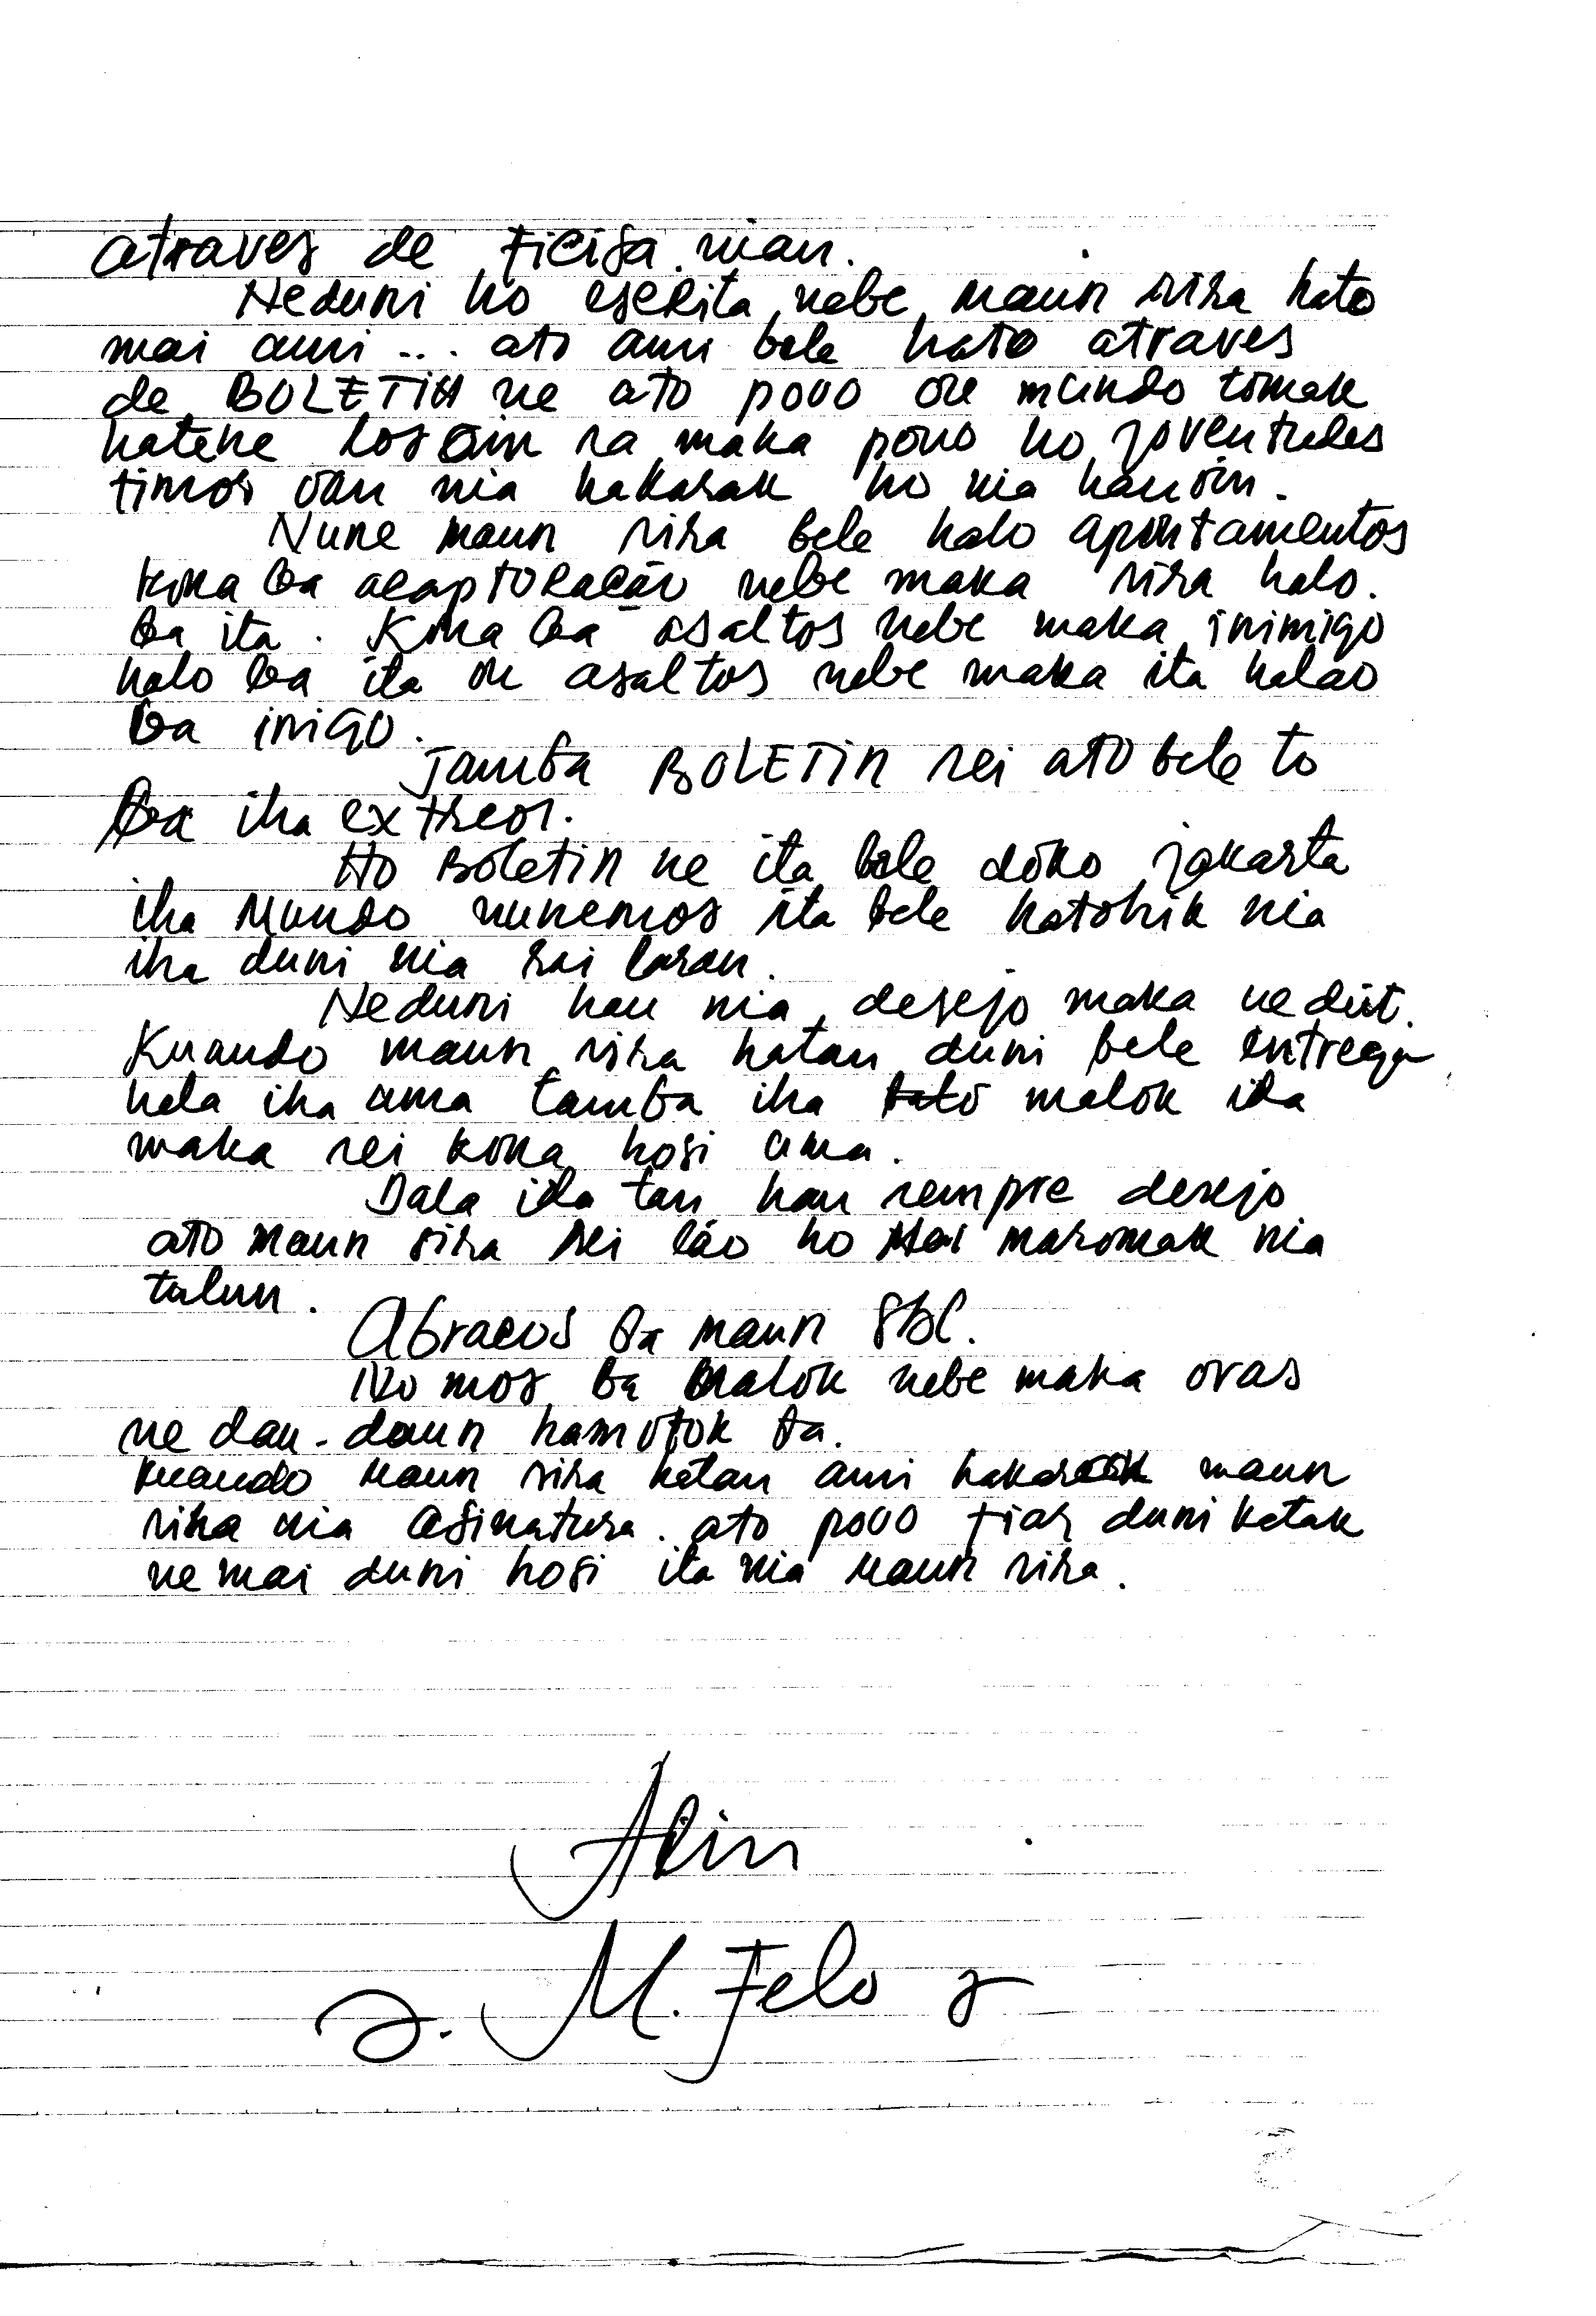 atraves de ficisa nian.
Neduni ho escrita nebe maun sira hato
mai ami ... ato ami bele hato atraves
de BOLETIN ne ato povo ou mundo tomak
hatene losoin sa maka povo ho joventudes
timor oan nia hakarak ho nia hanoin.
Nune maun sira bele halo apontamentos
kona ba acaptoração nebe maka sira halo.
ba ita. Kona ba asaltos nebe maka inimigo
halo ba ita ou asaltos nebe maka ita halao
ba inigo.
Tamba BOLETIN sei ato bele to
ba iha extreor.
Ho Boletin ne ita bele doko jakarta
iha Mundo nunemos ita bele hatohik nia
iha duni nia rai laran.
Neduni hau nia desejo maka nedit.
Kuando maun sira hatan duni bele entrega
hela iha uma tamba iha malok ida
maka sei kona hosi uma.
Dala ida tan hau sempre desejo
ato maun sira sei lão ho maromak nia
tulun.
Abracos ba maun SBC.
No mos ba malok nebe maka oras
ne dau-daun hamutok ba.
kuando maun sira hatan ami hakarak maun
sira nia asinatura. ato povo fiar duni katak
ne mai duni hosi ita nia maun sira.
Alin
M. Felo